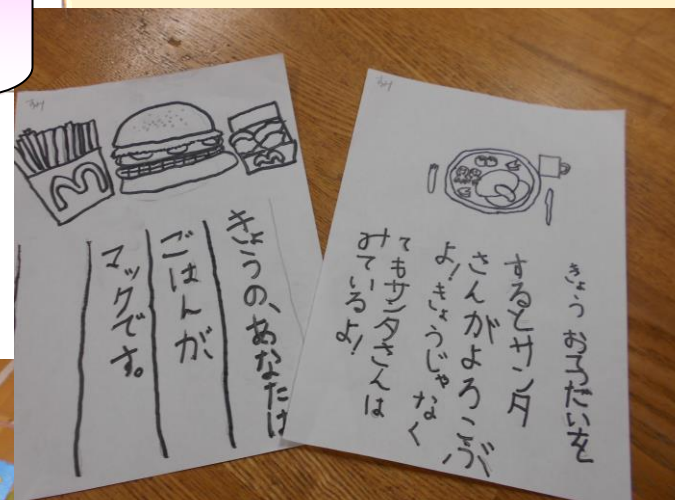 きょうの、あなたは
ごはんが、
マックです。
きょう おろだいを
するとサンタ
さんがよろこぶ
よ!きょうじゃなく
てもサンタさんは
みているよ!